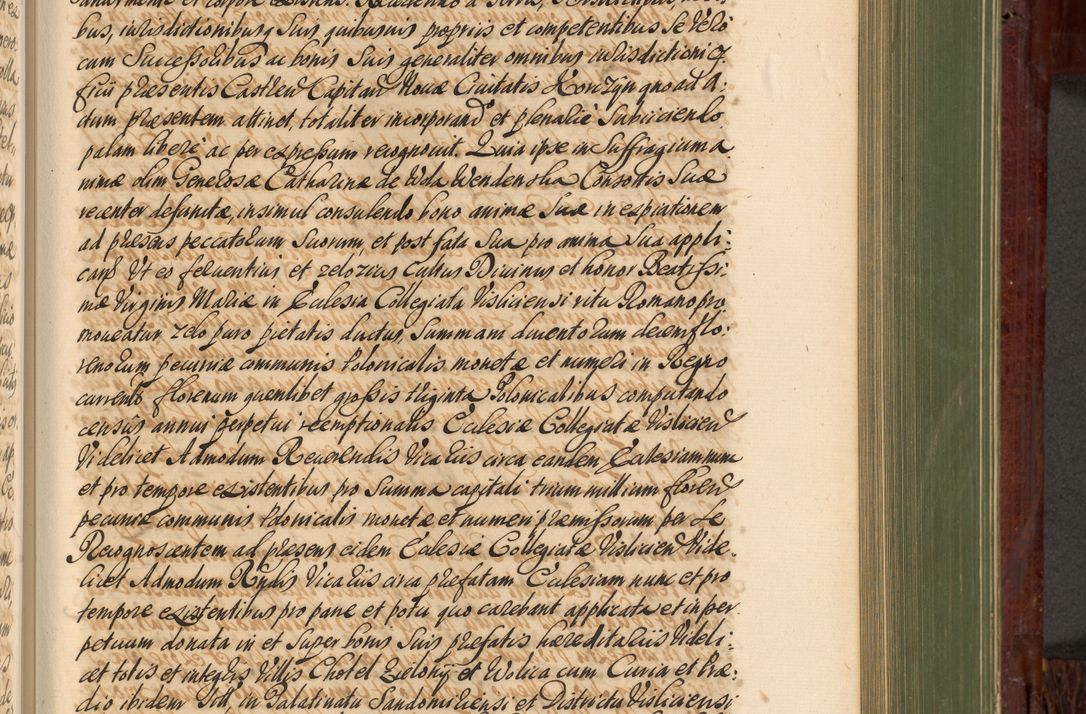 bus, iurisdictionibusq; suis quibusuis propriis et competentibus se vero
cum Successoribus ac bonis suis generaliter omnibus iurisdictioni of,
ficii praesentis Castren Capitan Novae Civitatis Korczyn quo ad A:
ctum praesentem attinet, totaliter incorporand et plenariè subiiciendo
palam liberè ac per expressum recognovit. Quia ipse in suffragium a
nimae olim Generosae Catharinae de Wola Wendenska Consortis suae
recenter defunctae, in simul consulendo bono animae suae in expiationem
ad praesens peccatorum suorum, et post fata sua pro anima sua appli:
cand Ut eo ferventius et zelozius Cultus Divinus et honor Beatissi
mae Virginis Mariae in Ecclesia Collegiata Visliciensi ritu Romano pro
moveatur zelo puro pietatis ductus, summam ducentorum decem flo:
renorum pecuniae communis Polonicalis monetae et numeri in Regno
currentis florenum quemlibet grossis triginta Polonicalibus computando
censûs annui perpetui reemptionalis Ecclesiae Collegiatae Vislicien
Videlicet Admodum Reverendis Vicariis circa eandem Ecclesiam nunc
et pro tempore existentibus pro summa capitali trium millium floren
pecuniae communis Polonicalis monetae et numeri praemissorum per se
Recognoscentem ad praesens eidem Ecclesiae Collegiatae Vislicien Vide.
licet Admodum Rndis Vicariis circa praefatam Ecclesiam nunc et pro
tempore existentibus pro pane et potu quo carebant applicata et in per
petuum donata in et super bonis suis praefatis haereditariis Videli:
cet totis et integris Villis Chotel Zielony et Wolica cum Curia et Prae:
dio ibidem sitt, in Palatinatu Sandomiriensi et Districtu Visliciensi